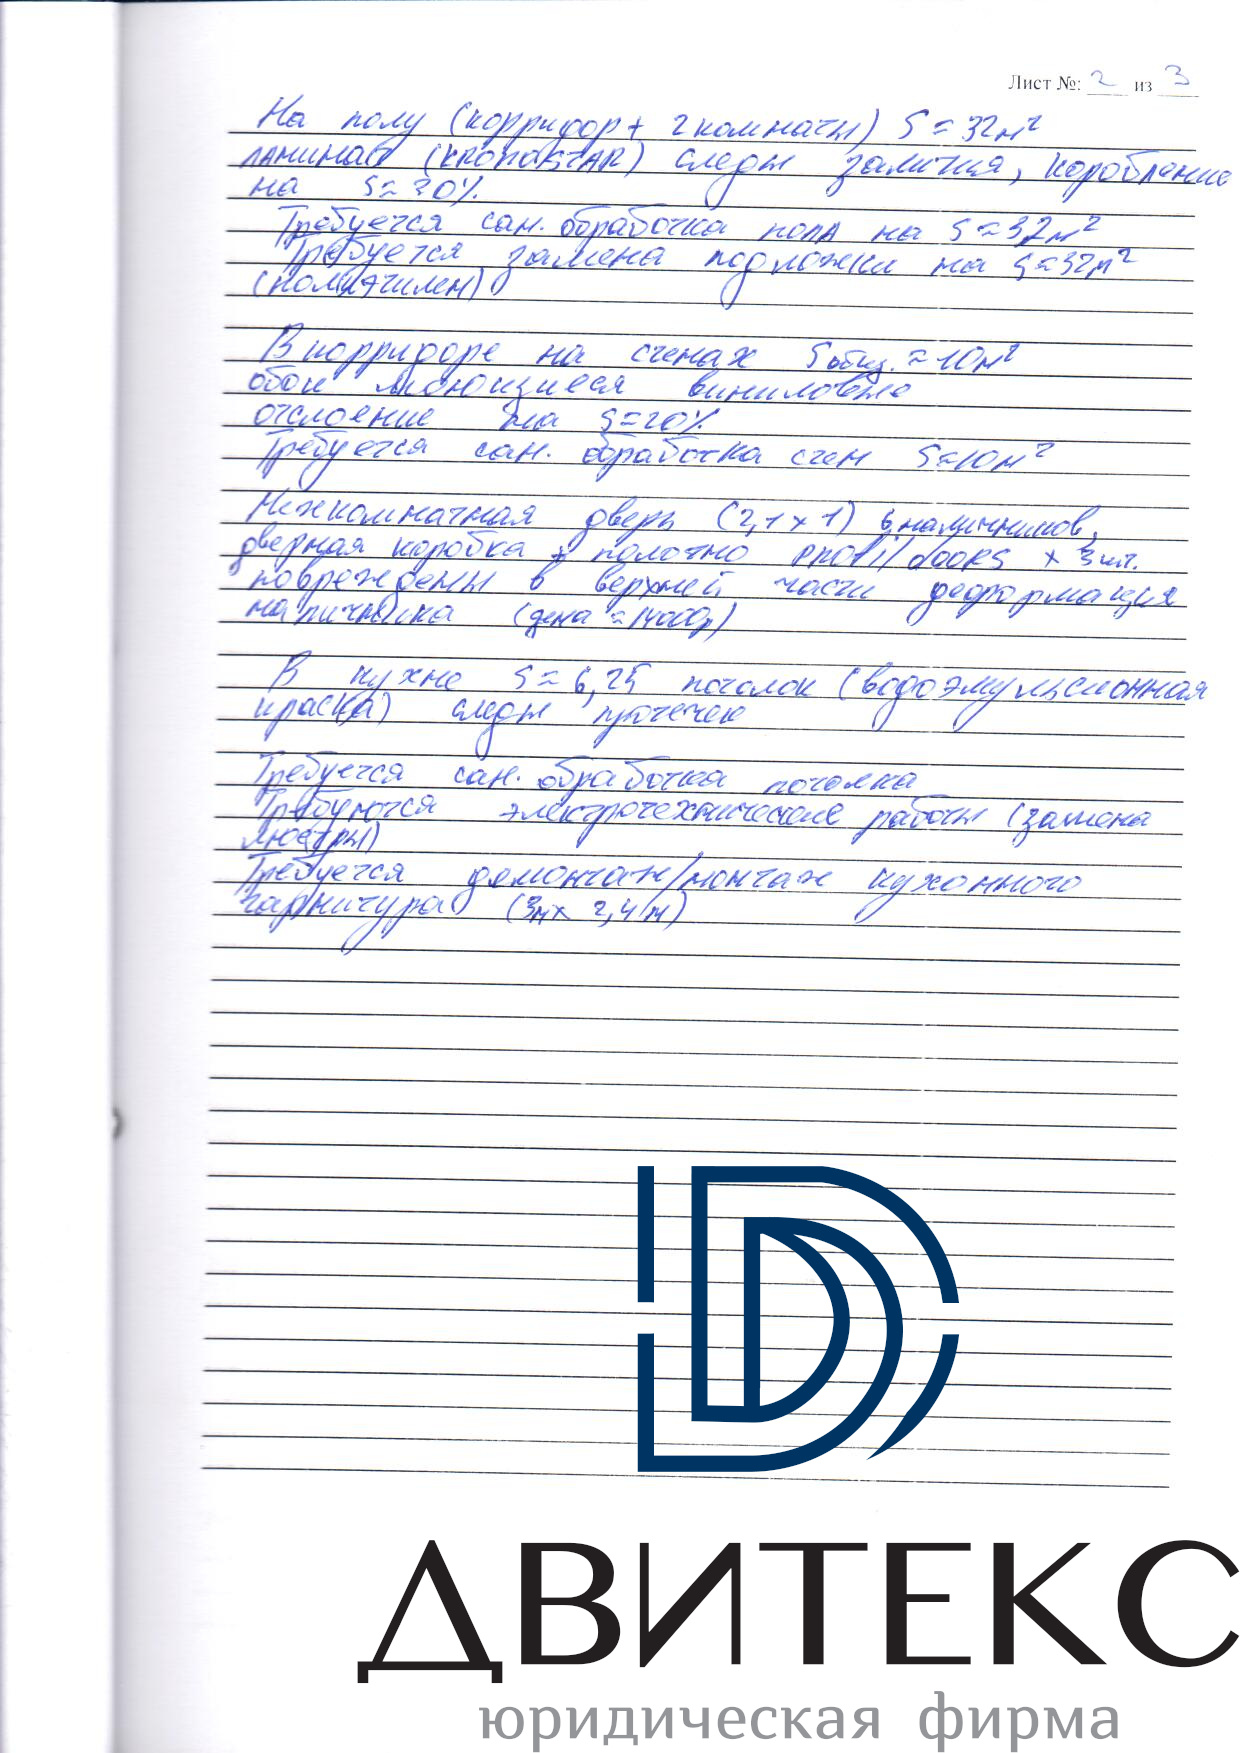 Лист №: 2 из 3
На полу (корридор + 2 комнаты) S = 32м²
ламинат (KRONOSTAR) следы залития, коробление
на S≈30%
Требуется сан. обработка пола на S≈32м²
Требуется замена подложки на S≈32м²
(полиэтилен)
В корридоре на стенах Sобщ.≈10м²
обои моющиеся виниловые
отслоение на S=20%
Требуется сан. обработка стен S≈10м²
Межкомнатная дверь (2,1x1) 6 наличников,
дверная коробка + полотно Profil doors x 3шт.
повреждены в верхней части деформация
наличника (цена ≈14000р)
В кухне S≈6,25 потолок (водоэмульсионная
краска) следы протечек
Требуется сан. обработка потолка
Требуются электротехнические работы (замена
люстры)
Требуется демонтаж/монтаж кухонного
гарнитура (3м x 2,4м)
ДВИТЕКС
юридическая фирма